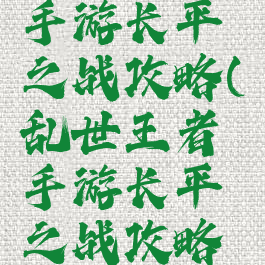 手游长平
之战攻略(
乱世王者
手游长平
之战攻略